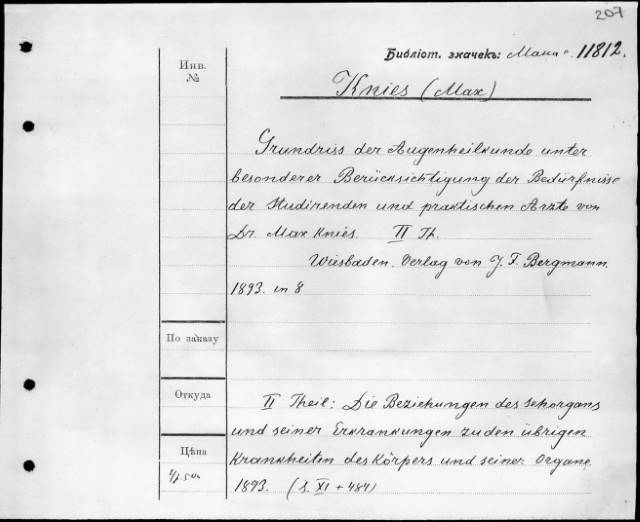 207
Библіот. значекъ: 11812.
Инв.
№
Knies (Max)
Grundriss der Augenheilkunde unter
besonderer Berücksichtigung der Bedürfnisse
der Studirenden und praktischen Arzte von
Dr. Max Knies. II Th.
Wiesbaden. Verlag von J. F. Bergmann.
1893. in 8
По заказу
Откуда
II Theil: Die Beziehungen des Sehorgans
und seiner Erkrankungen zu den übrigen
Krankheiten des Körpers und seiner Organe.
Цѣна
1893. (S. XI + 484)